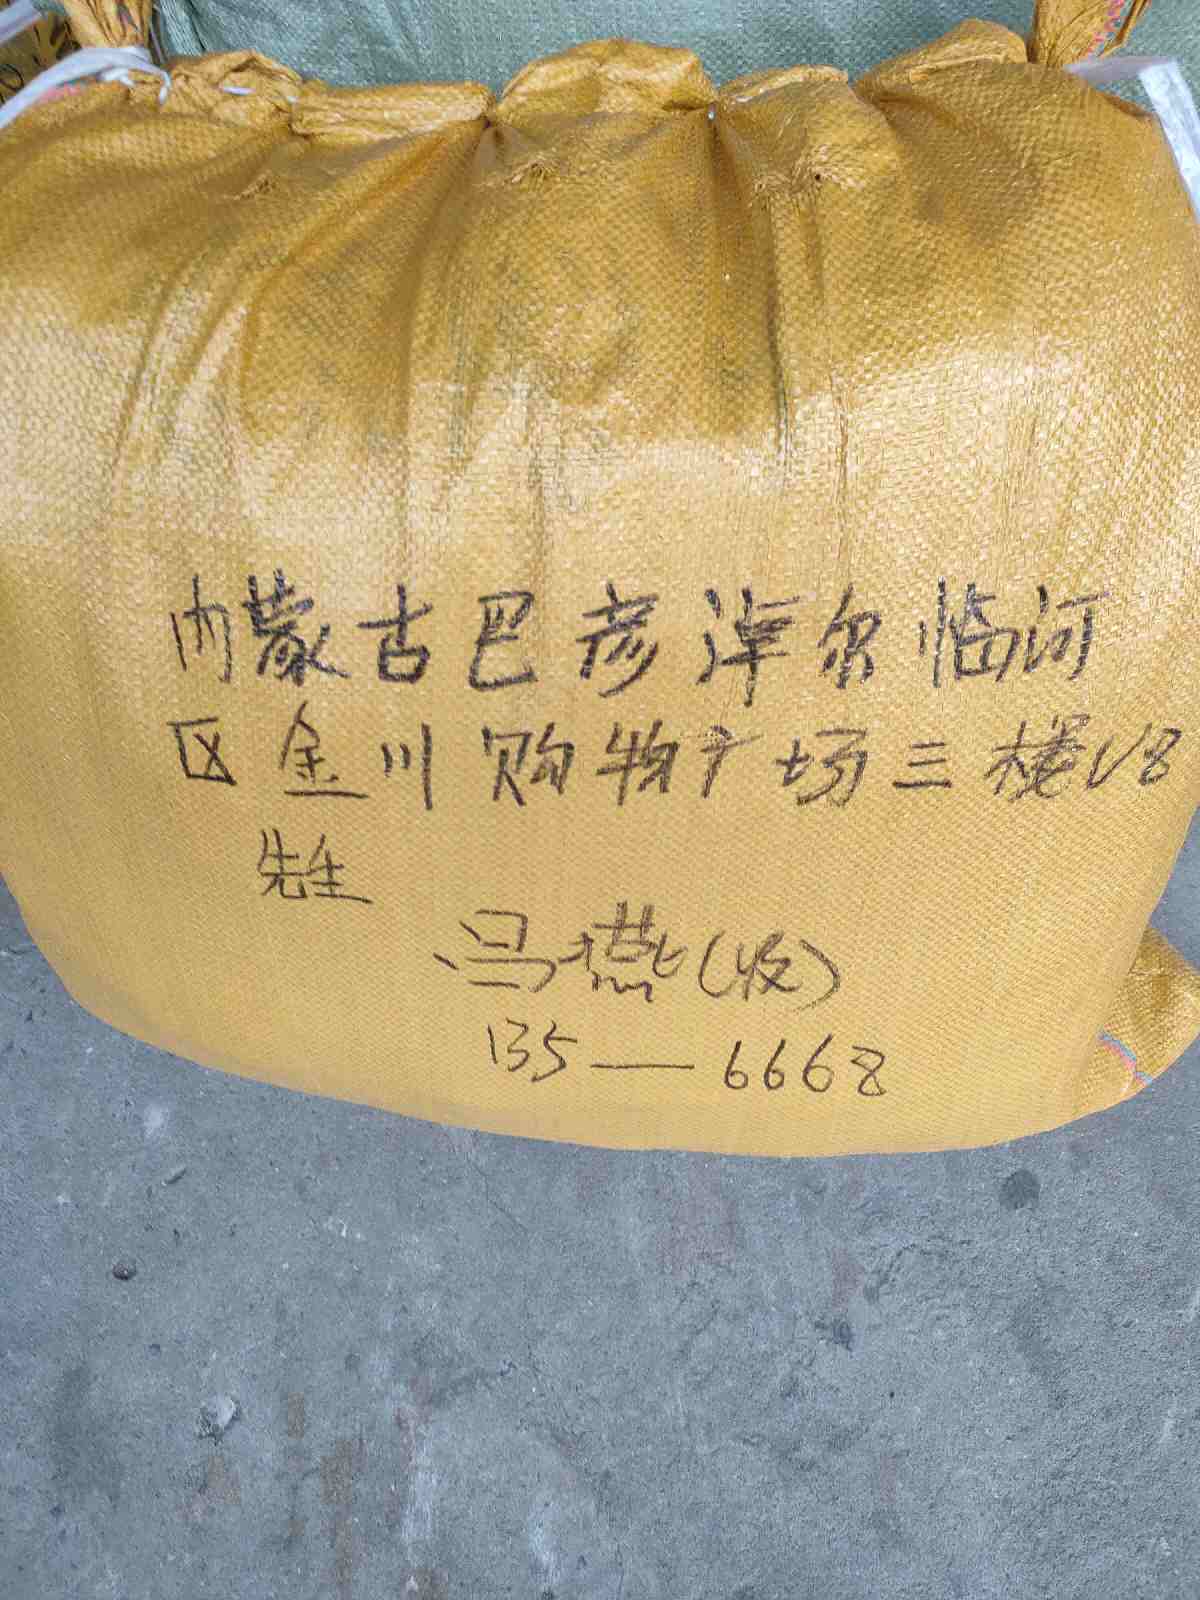 内蒙古巴彦淖尔临河
区金川购物广场三楼V8
先生
冯燕(收)
135—6668